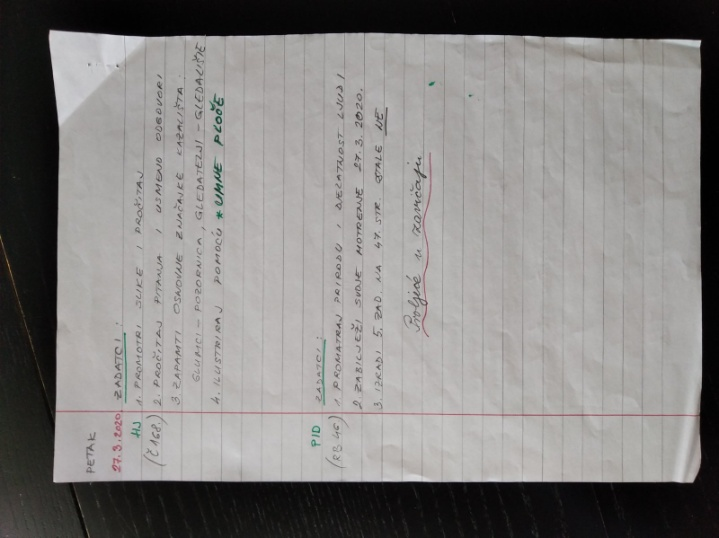 PETAK
27.3.2020. ZADATCI:
HJ 1. PROMOTRI SLIKE I PROČITAJ
(Č 168.) 2. PROČITAJ PITANJA I USMENO ODGOVORI
3. ZAPAMTI OSNOVNE ZNAČAJKE KAZALIŠTA:
GLUMCI - POZORNICA, GLEDATELJI - GLEDALIŠTE
4. ILUSTRIRAJ POMOĆU *UMNE PLOČE
PID ZADATCI:
(RB 46) 1. PROMATRAJ PRIRODU I DJELATNOST LJUDI
2. ZABILJEŽI SVOJE MOTRENJE 27.3.2020.
3. IZRADI 5. ZAD. NA 47. STR. OSTALE NE
Proljeće u zavičaju